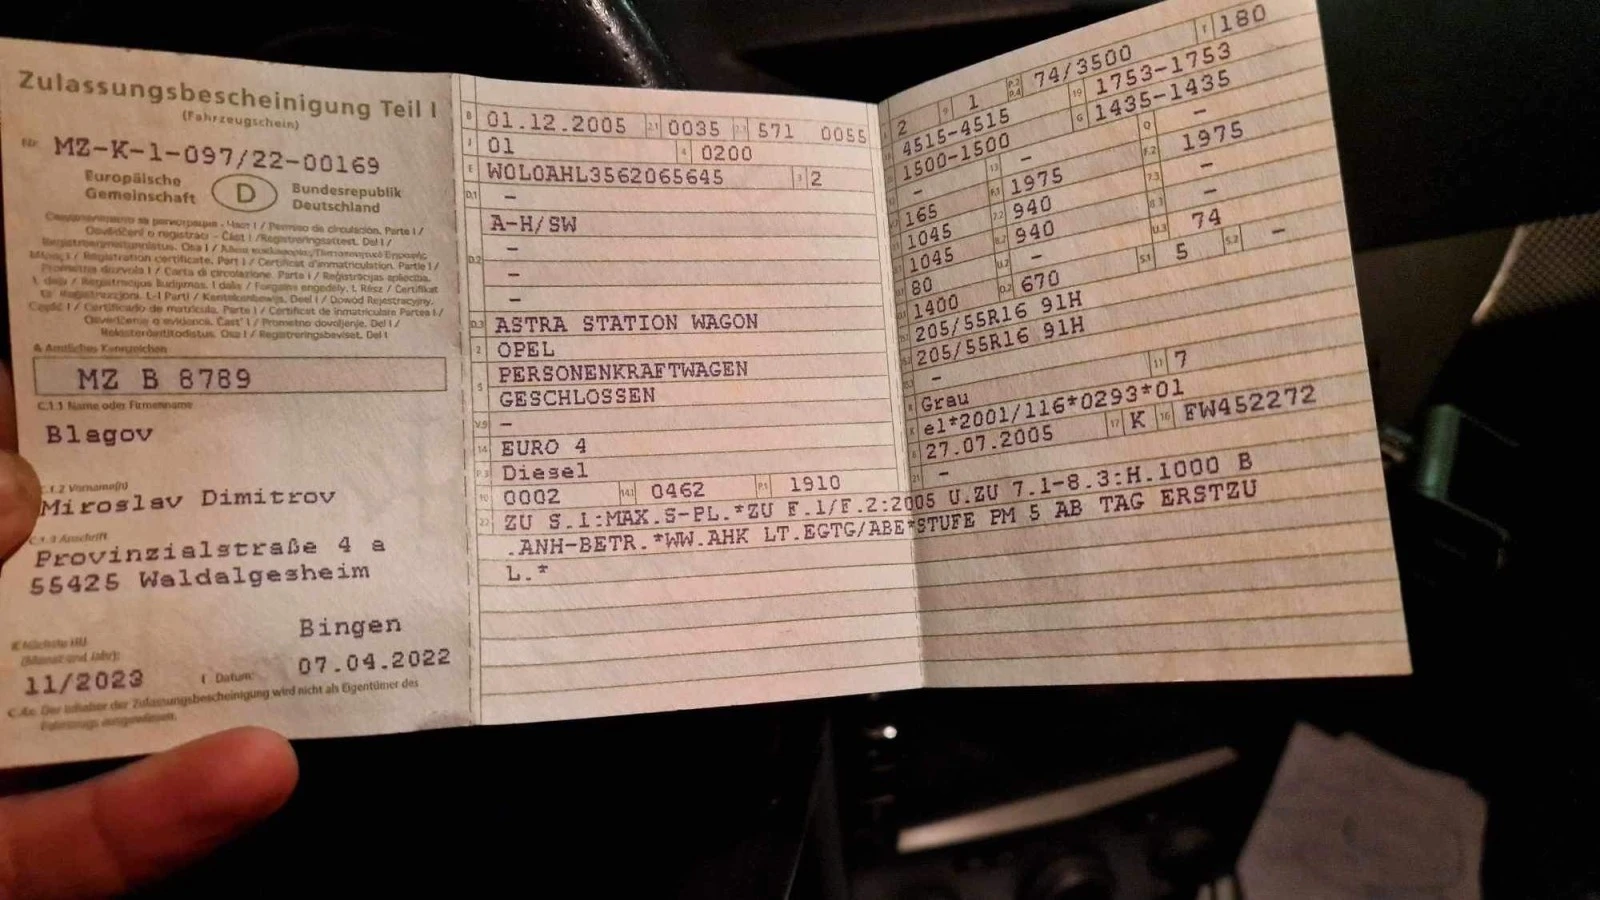 Zulassungsbescheinigung Teil I
(Fahrzeugschein)
Nr. MZ-K-1-097/22-00169
Europäische Gemeinschaft D Bundesrepublik Deutschland
Osvědčení o registraci - Část I / Registreringsattest. Del I /
Registration certificate. Part I / Certificat d'immatriculation. Partie I /
Prometna dozvola I / Carta di circolazione. Parte I /
A Amtliches Kennzeichen
MZ B 8789
C.1.1 Name oder Firmenname
Blagov
C.1.2 Vorname(n)
Miroslav Dimitrov
C.1.3 Anschrift
Provinzialstraße 4 a
55425 Waldalgesheim
Nächste HU
(Monat und Jahr):
11/2023
Bingen
I Datum: 07.04.2022
C.4c. Der Inhaber der Zulassungsbescheinigung wird nicht als Eigentümer des
Fahrzeugs ausgewiesen.
B 01.12.2005 2.1 0035 2.2 571 0055
J 01 4 0200
E W0L0AHL3562065645 3 2
D.1 –
A-H/SW
D.2 –
–
–
D.3 ASTRA STATION WAGON
2 OPEL
5 PERSONENKRAFTWAGEN
GESCHLOSSEN
V.9 –
14 EURO 4
P.3 Diesel
10 0002 14.1 0462 P.1 1910
22 ZU S.1:MAX.S-PL.*ZU F.1/F.2:2005 U.ZU 7.1-8.3:H.1000 B
.ANH-BETR.*WW.AHK LT.EGTG/ABE*STUFE PM 5 AB TAG ERSTZU
L.*
2 9 1 P.2 P.4 74/3500 T 180
4515-4515 19 1753-1753
1500-1500 G 1435-1435
– 13 – Q –
165 F.1 1975 F.2 1975
1045 7.2 940 7.3 –
1045 8.2 940 8.3 –
80 U.2 – U.3 74
1400 O.2 670 S.1 5 S.2 –
205/55R16 91H
205/55R16 91H
–
R Grau 11 7
K e1*2001/116*0293*01
6 27.07.2005 17 K 16 FW452272
21 –